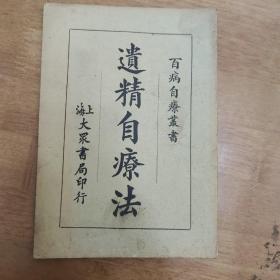 百病自療叢書
遺精自療法
上海大眾書局印行